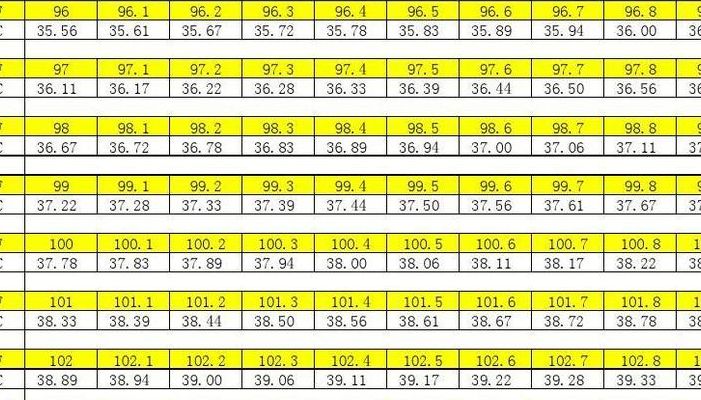 96 96.1 96.2 96.3 96.4 96.5 96.6 96.7 96.8
C 35.56 35.61 35.67 35.72 35.78 35.83 35.89 35.94 36.00
97 97.1 97.2 97.3 97.4 97.5 97.6 97.7 97.8
C 36.11 36.17 36.22 36.28 36.33 36.39 36.44 36.50 36.56
98 98.1 98.2 98.3 98.4 98.5 98.6 98.7 98.8
C 36.67 36.72 36.78 36.83 36.89 36.94 37.00 37.06 37.11
99 99.1 99.2 99.3 99.4 99.5 99.6 99.7 99.8
C 37.22 37.28 37.33 37.39 37.44 37.50 37.56 37.61 37.67
100 100.1 100.2 100.3 100.4 100.5 100.6 100.7 100.8
C 37.78 37.83 37.89 37.94 38.00 38.06 38.11 38.17 38.22
101 101.1 101.2 101.3 101.4 101.5 101.6 101.7 101.8
C 38.33 38.39 38.44 38.50 38.56 38.61 38.67 38.72 38.78
102 102.1 102.2 102.3 102.4 102.5 102.6 102.7 102.8
C 38.89 38.94 39.00 39.06 39.11 39.17 39.22 39.28 39.33